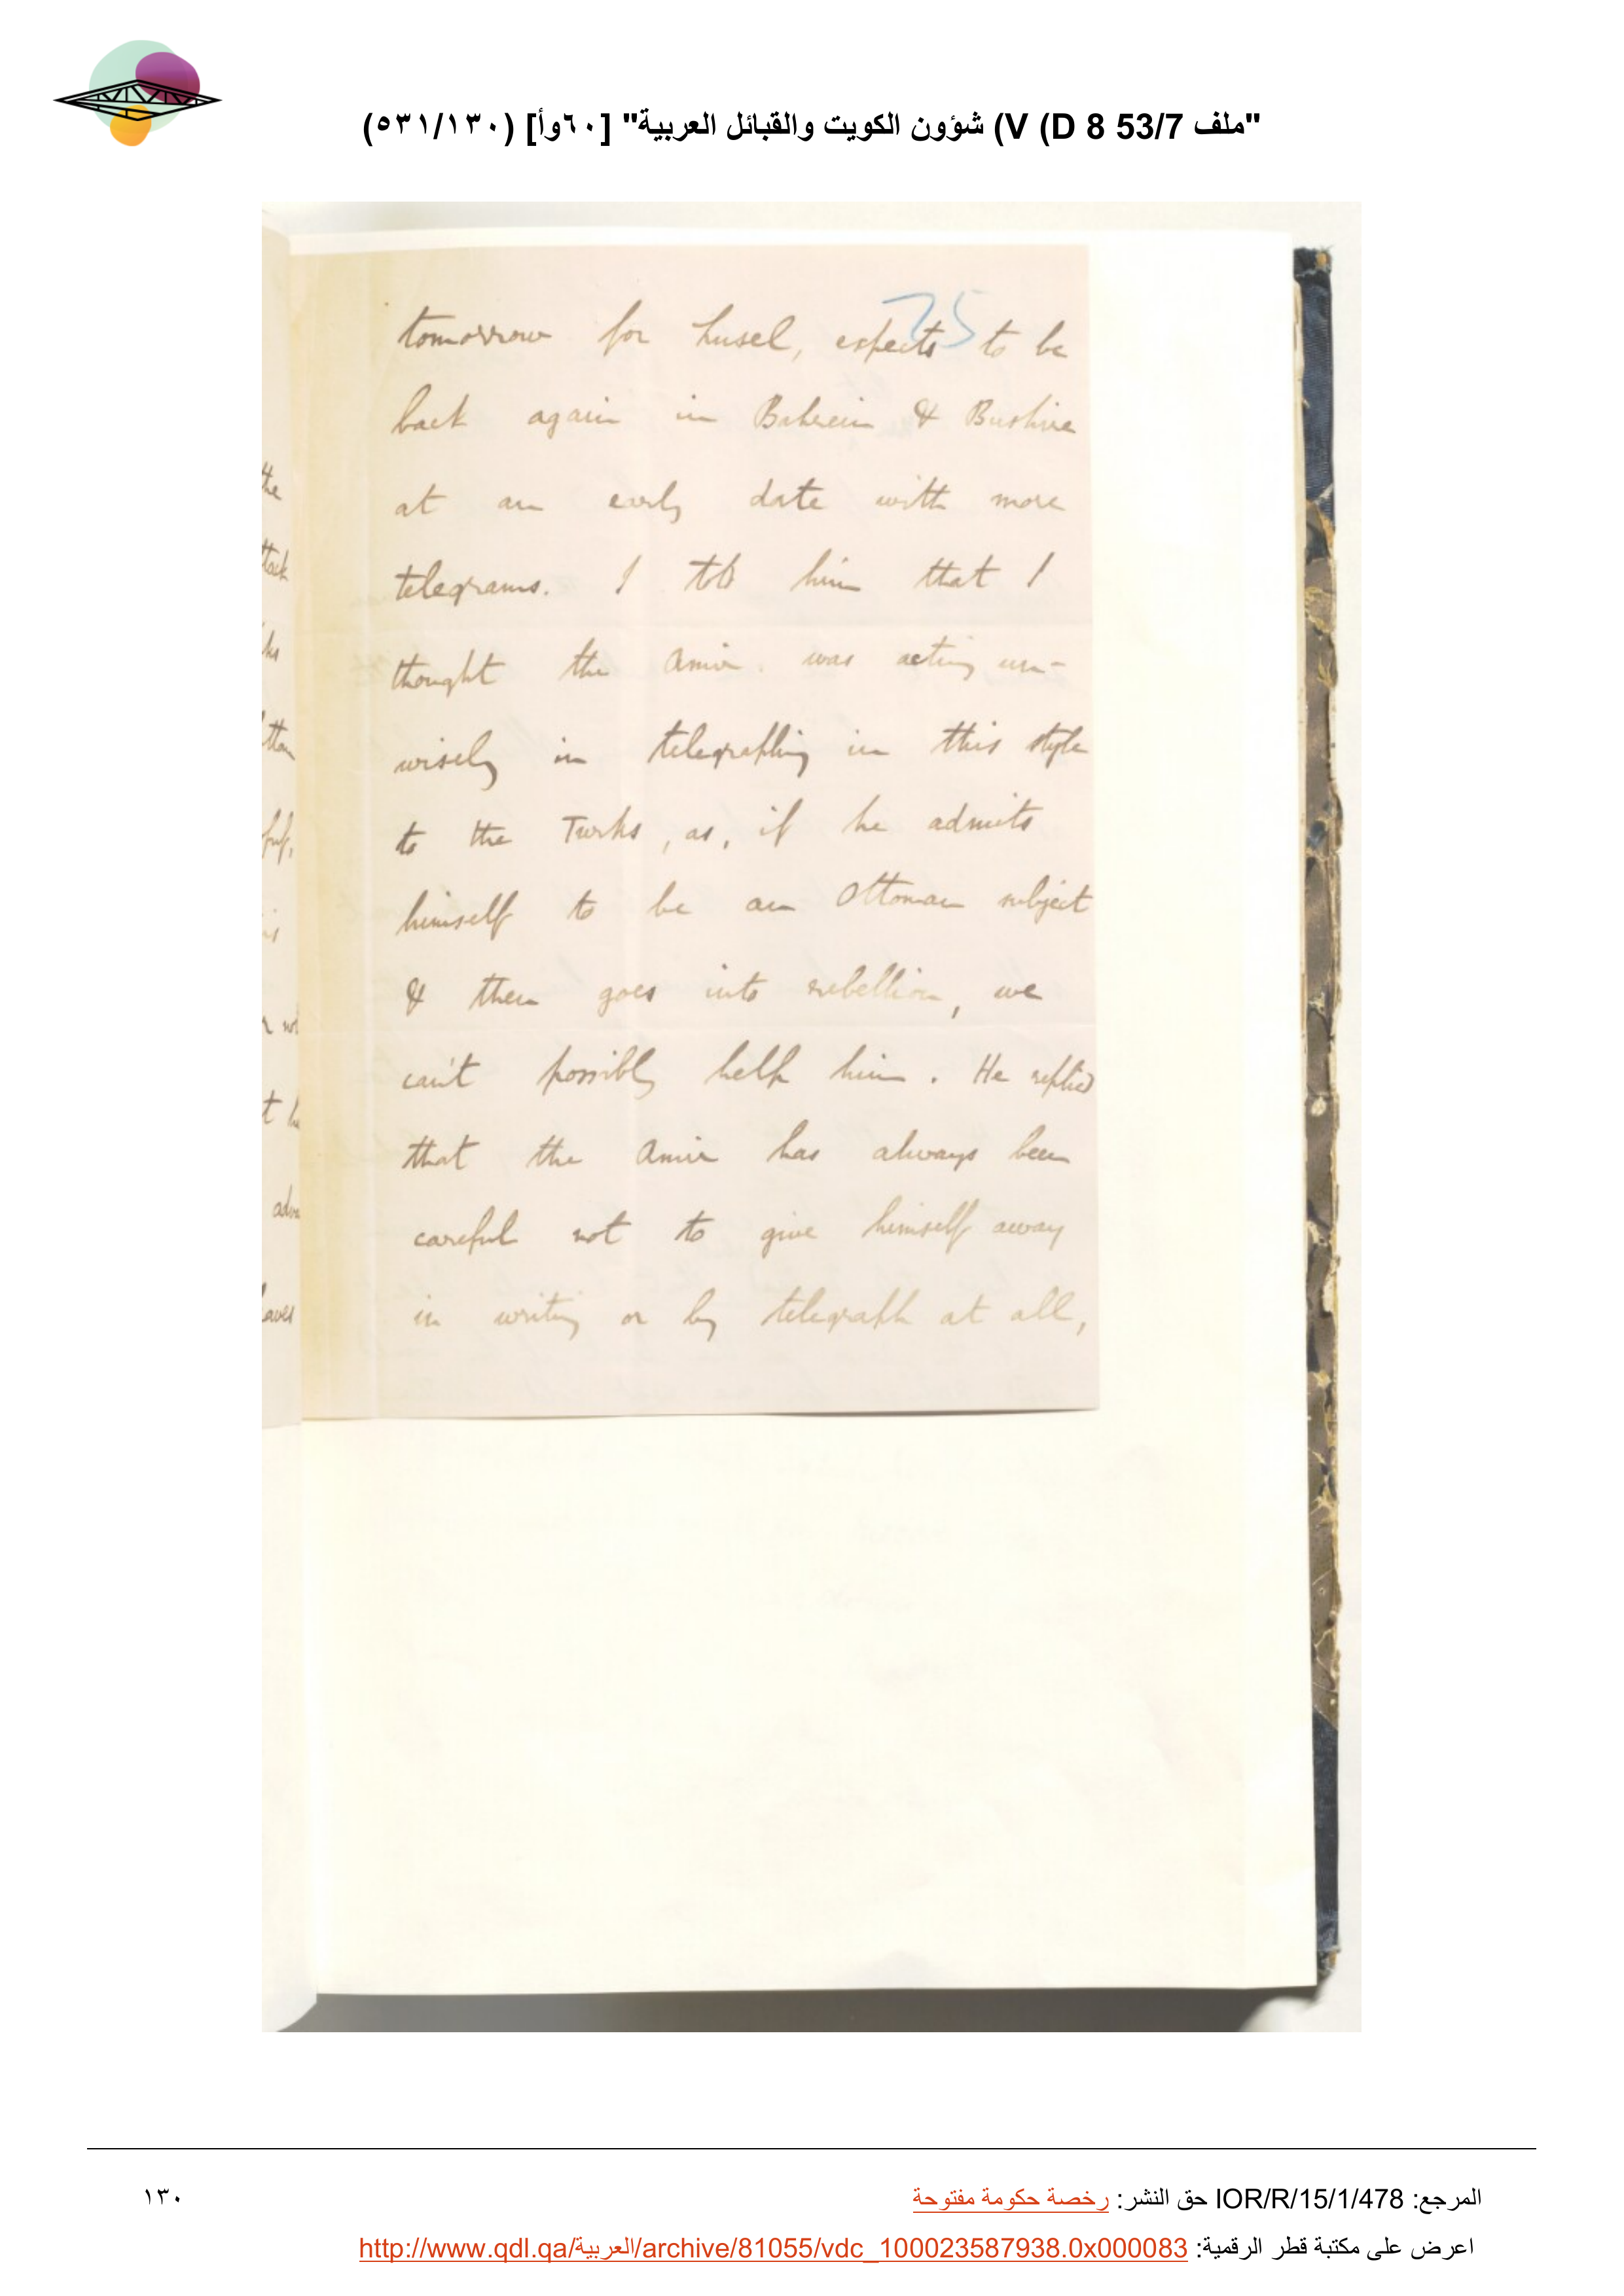 "ملف 53/7 D 8) V) شؤون الكويت والقبائل العربية" [٦٠وأ] (٥٣١/١٣٠)
75
tomorrow for husel, expects to be
back again in Bahrein & Bushire
at an early date with more
telegrams. I told him that I
thought the Amir was acting un-
wisely in telegraphing in this style
to the Turks, as, if he admits
himself to be an Ottoman subject
& then goes into rebellion, we
can't possibly help him. He replied
that the Amir has always been
careful not to give himself away
in writing or by telegraph at all,
the
ttack
his
n not
aves
المرجع: IOR/R/15/1/478 حق النشر: رخصة حكومة مفتوحة
١٣٠
اعرض على مكتبة قطر الرقمية: http://www.qdl.qa/العربية/archive/81055/vdc_100023587938.0x000083